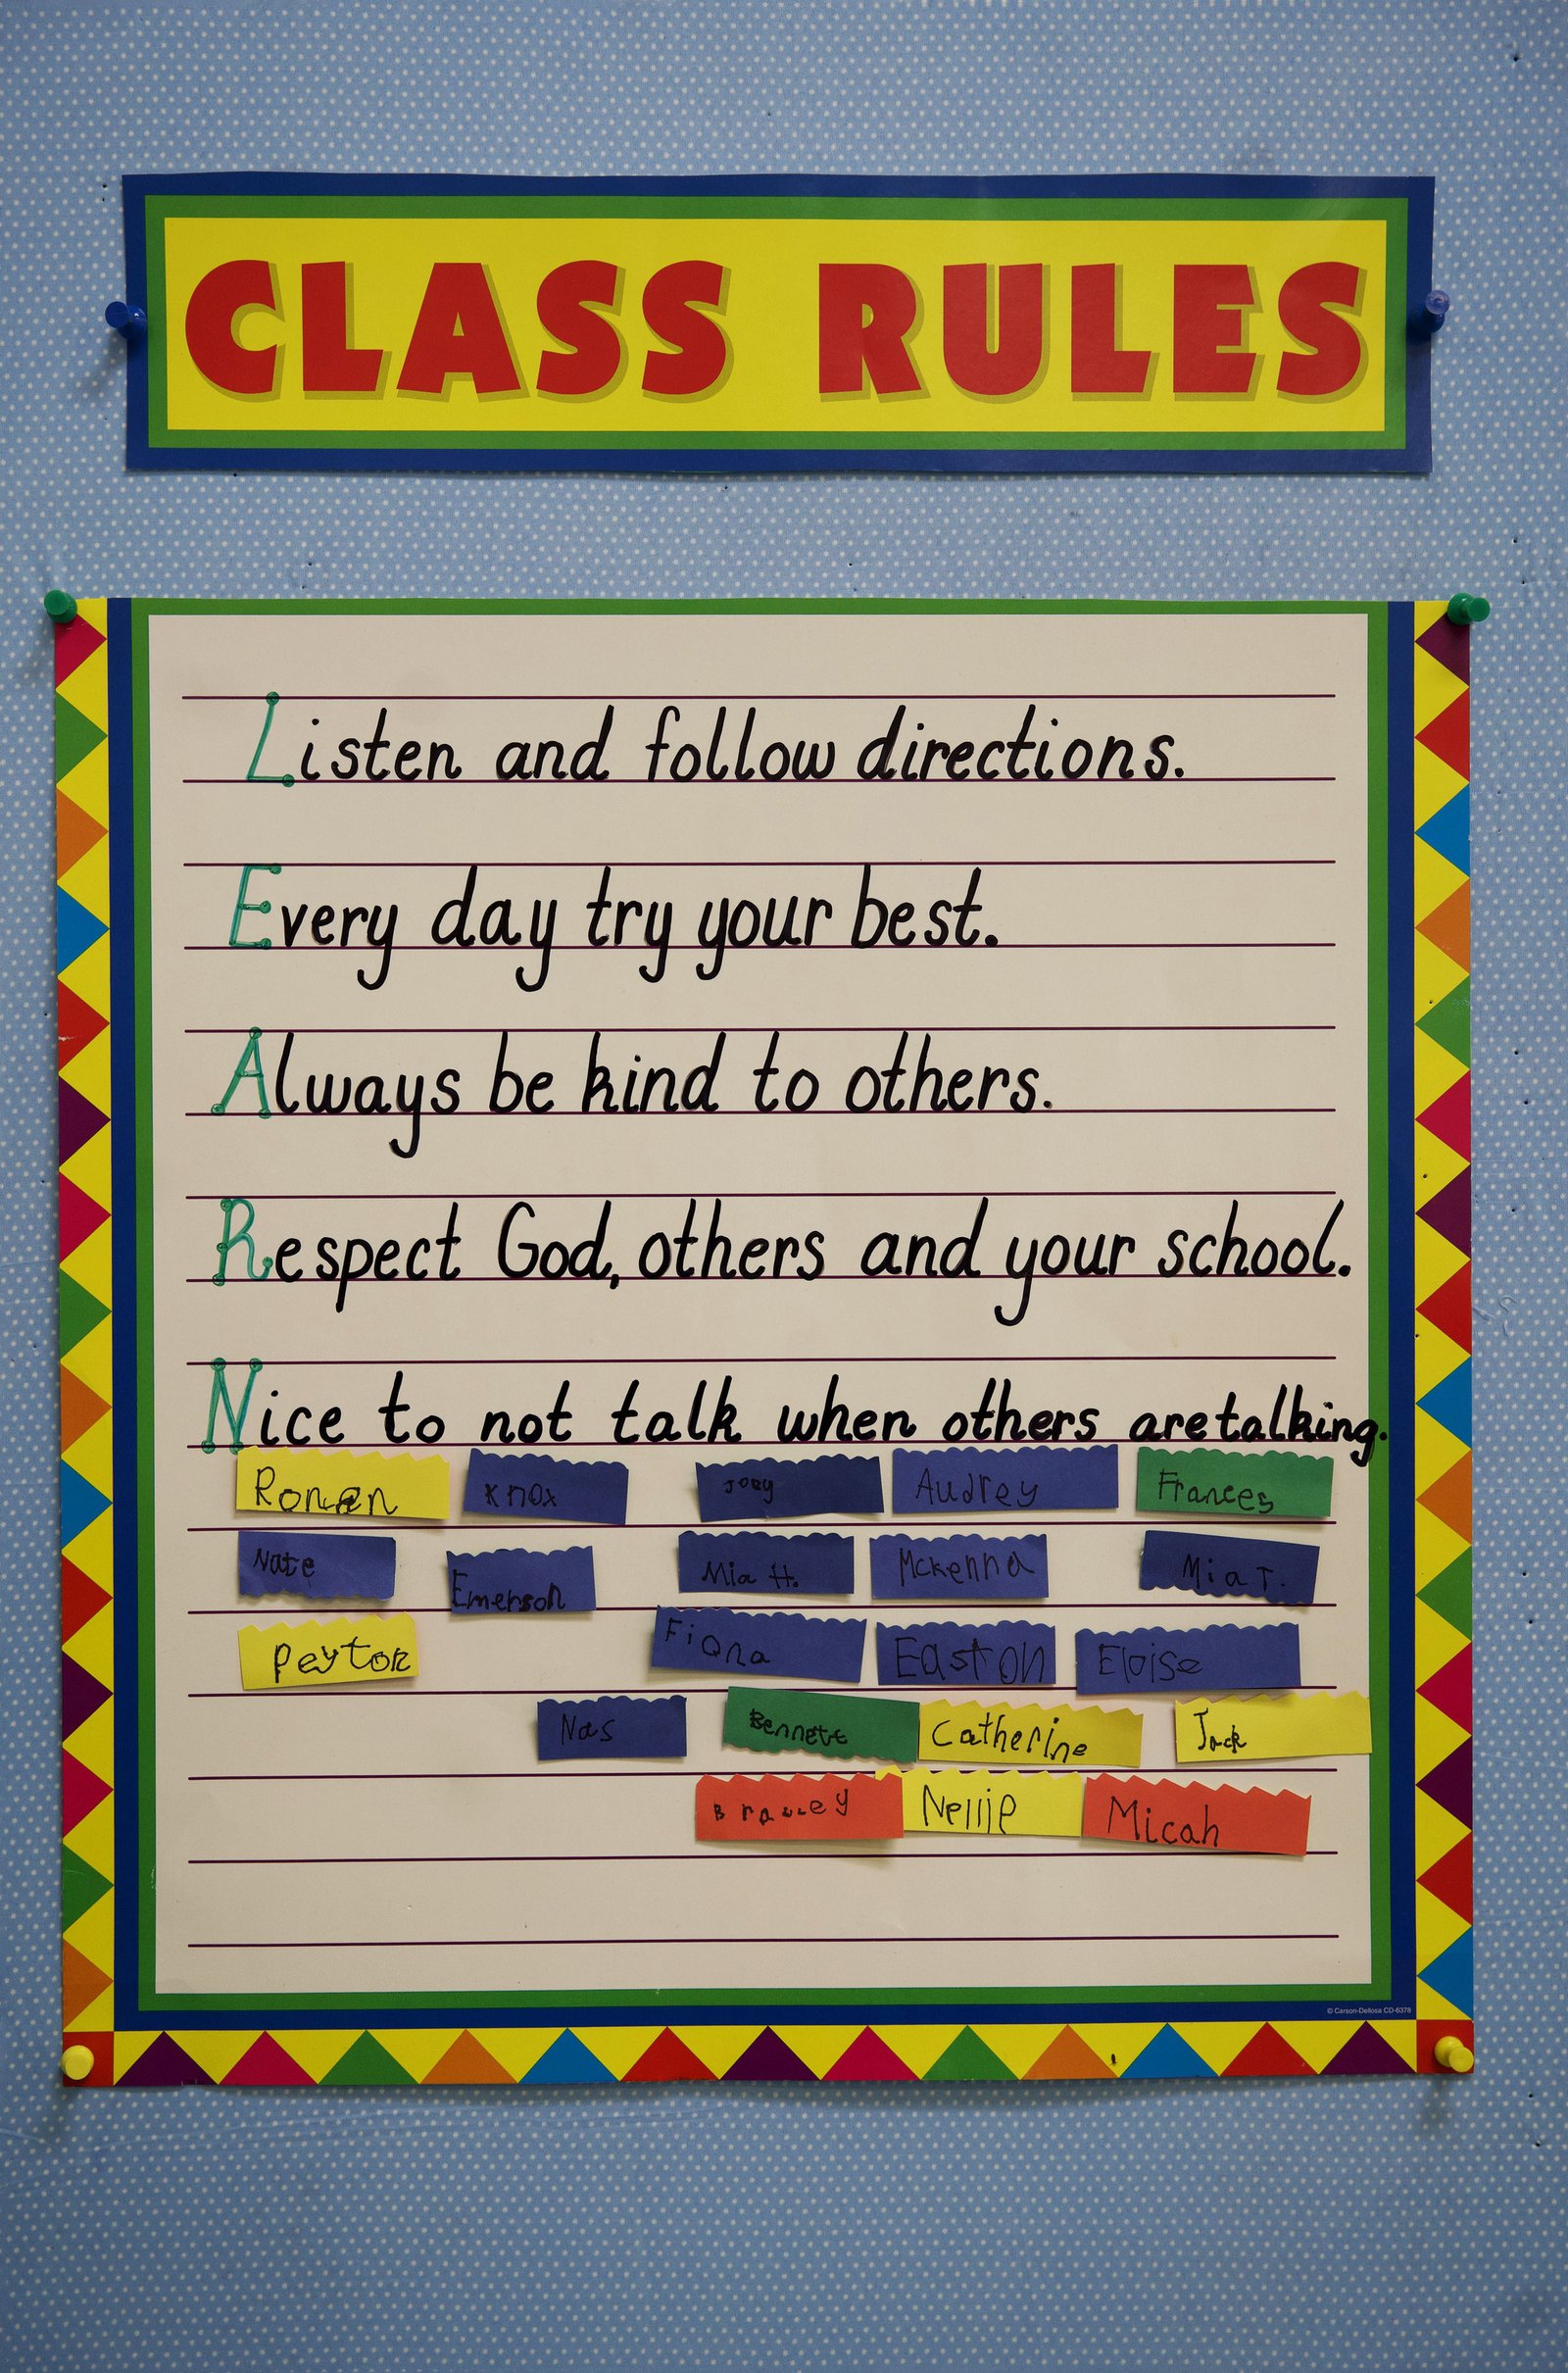 CLASS RULES
Listen and follow directions.
Every day try your best.
Always be kind to others.
Respect God, others and your school.
Nice to not talk when others are talking.
Ronan Knox Joey Audrey Frances
Nate Emerson Mia H. Mckenna Mia T.
Peyton Fiona Easton Eloise
Nas Bennett Catherine Jack
Nellie Micah
© Carson-Dellosa CD-6378